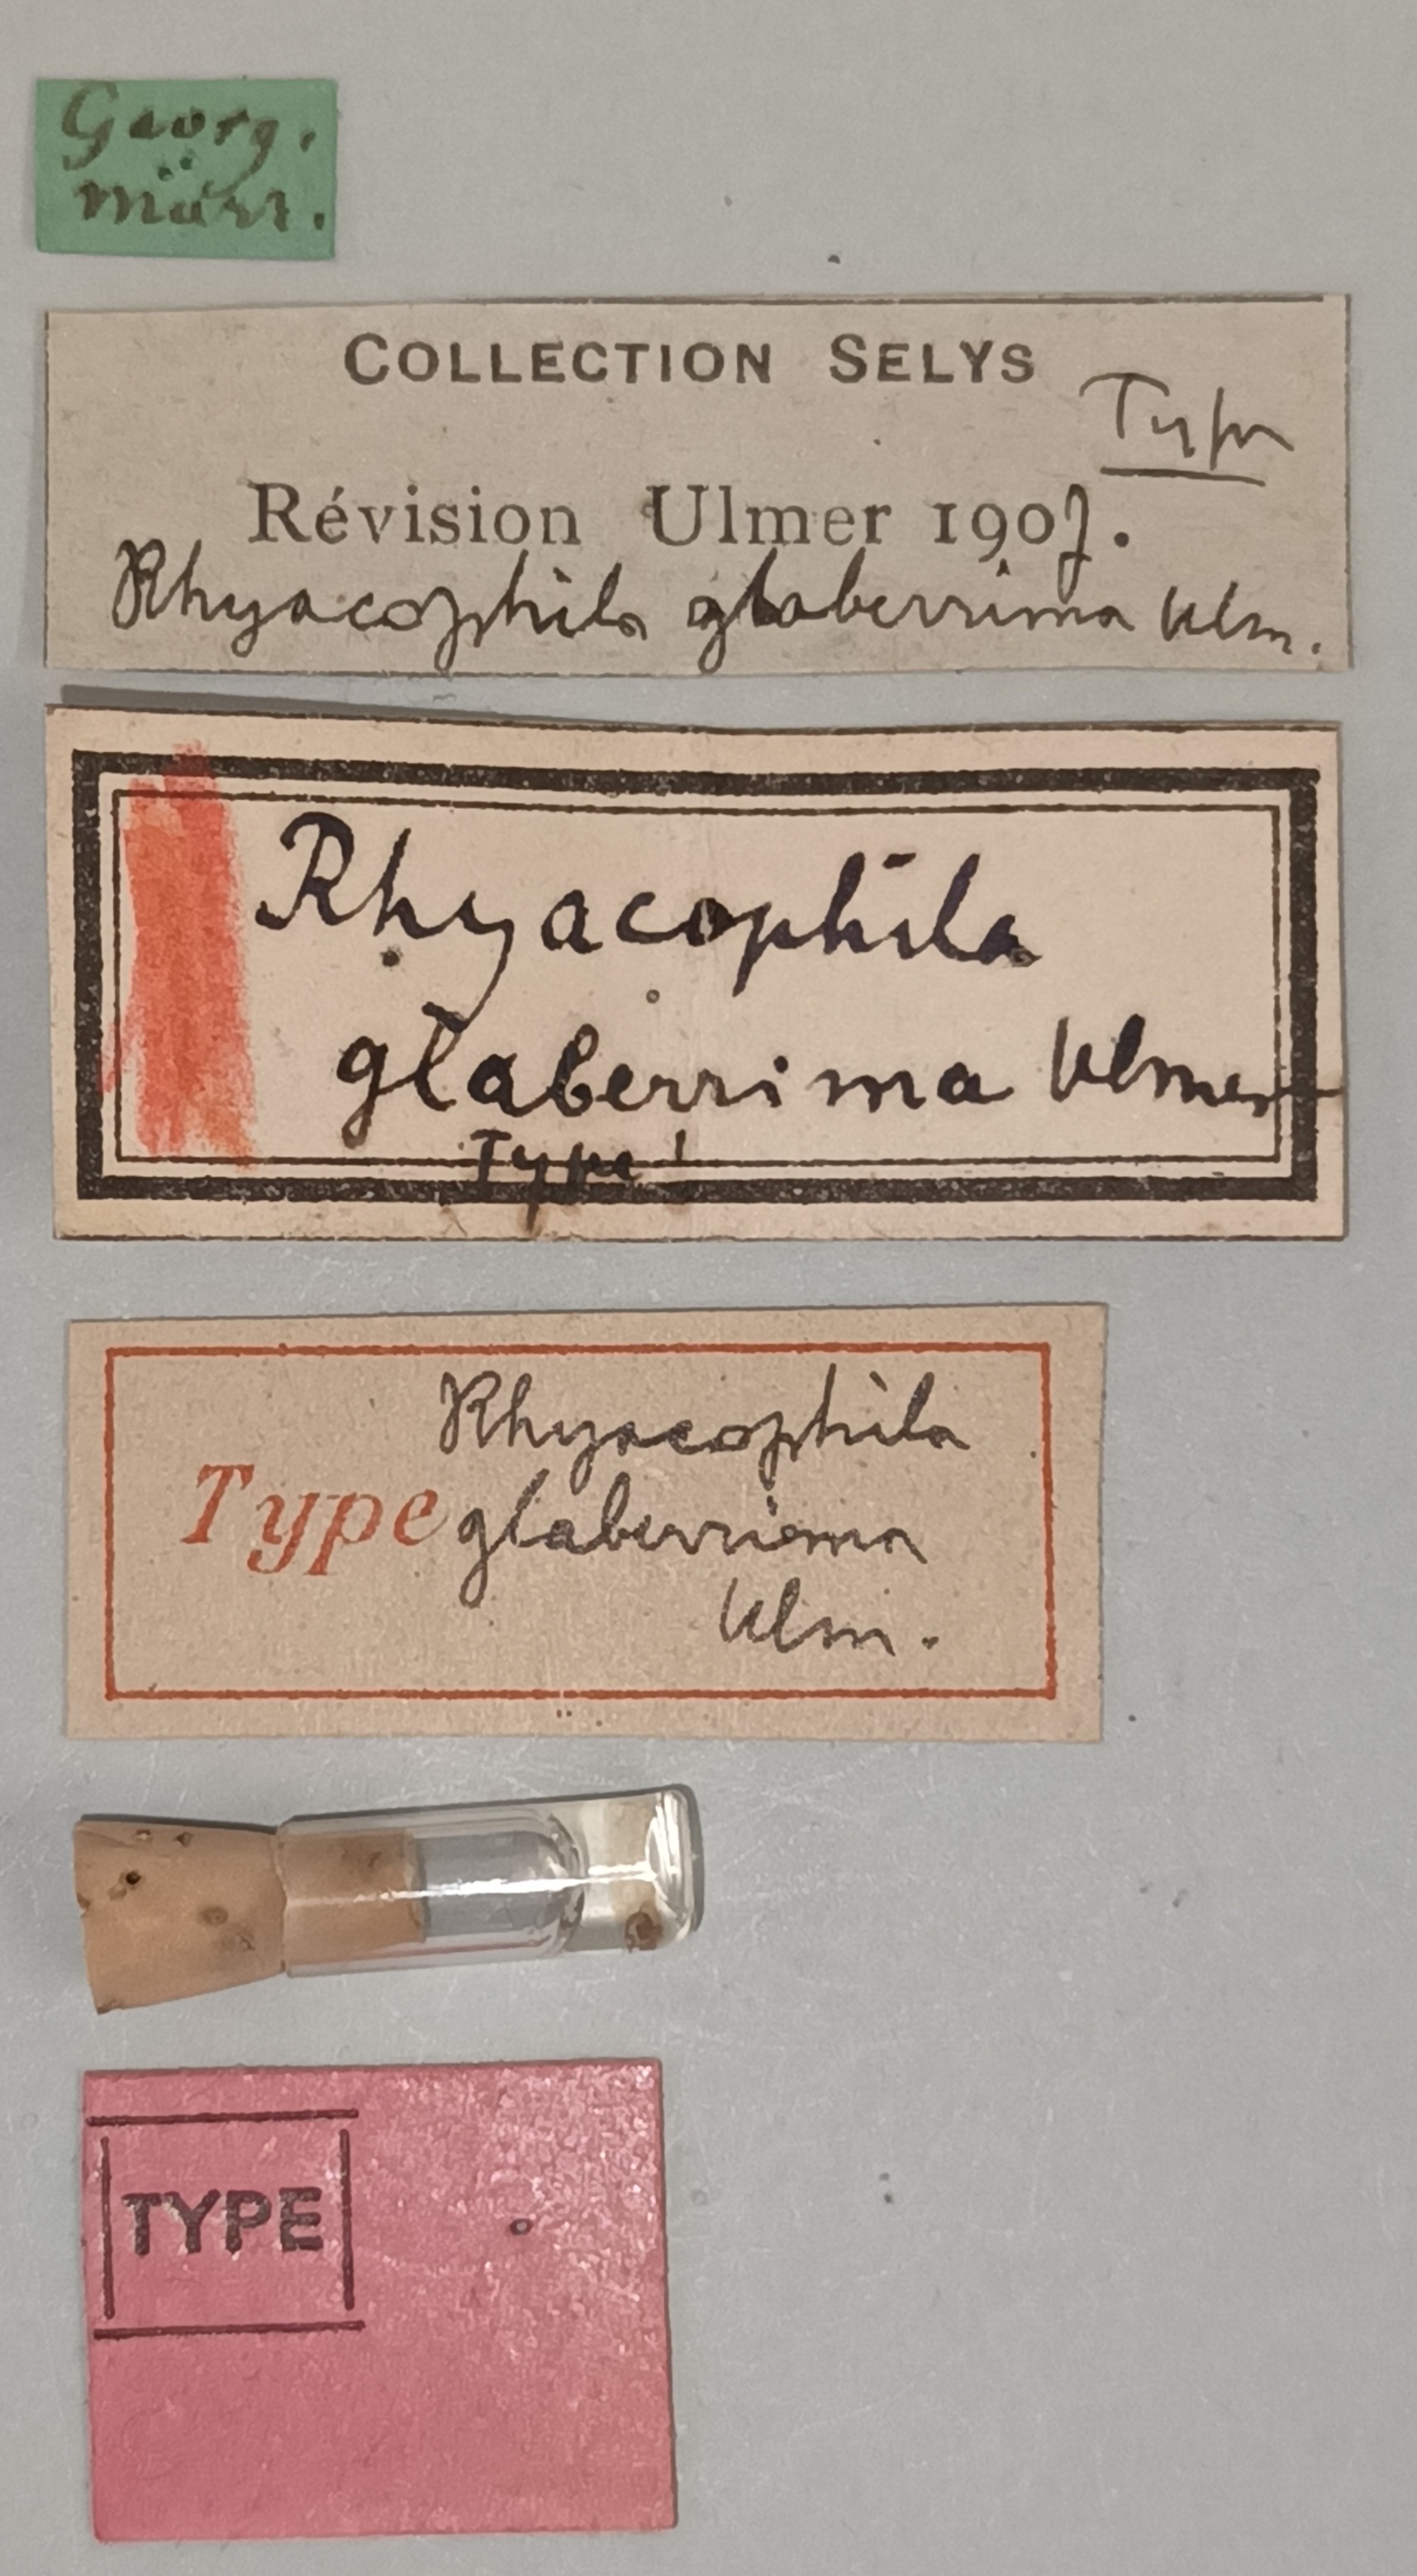 Georg.
märz.
COLLECTION SELYS
Type
Révision Ulmer 1907.
Rhyacophila glaberrima Ulm.
Rhyacophila
glaberrima Ulmer
Type!
Rhyacophila
Type glaberrima
Ulm.
TYPE